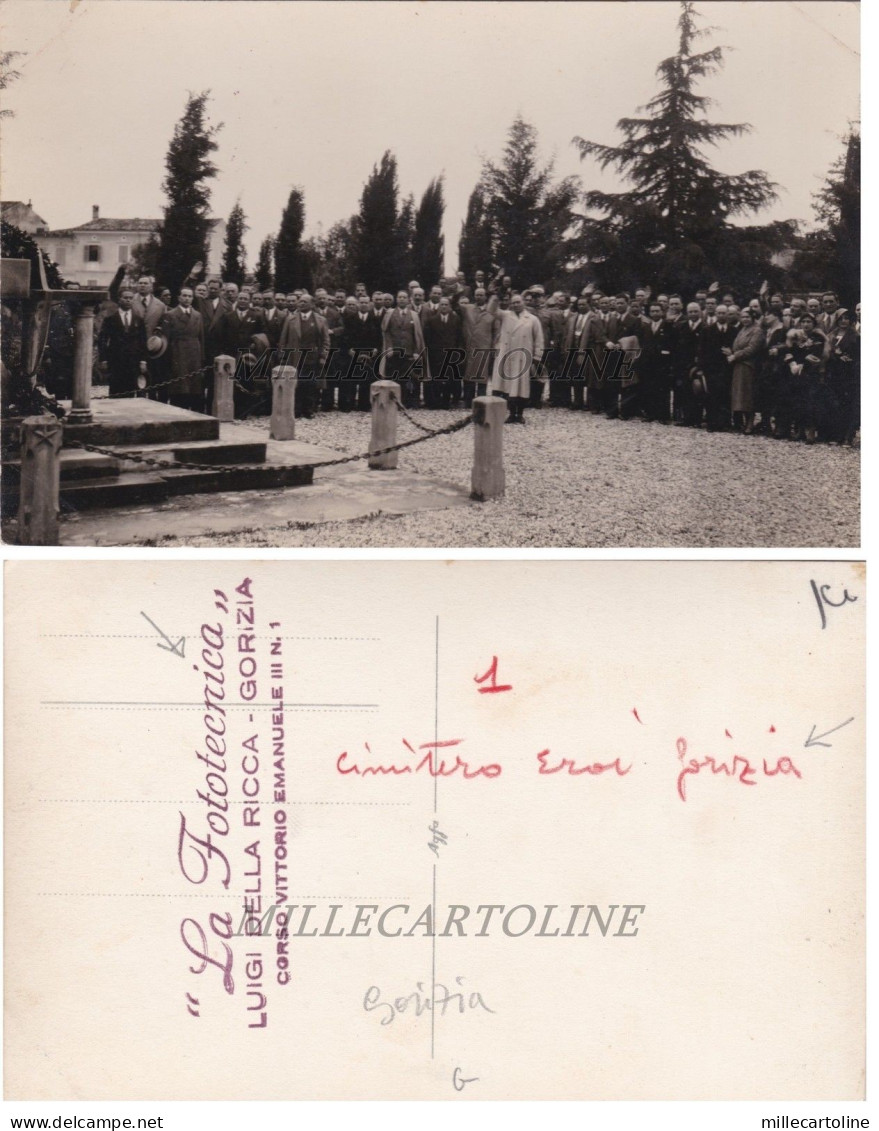 MILLECARTOLINE
"La Fototecnica"
LUIGI DELLA RICCA - GORIZIA
CORSO VITTORIO EMANUELE III N. 1
1
Cimitero Eroi Gorizia
Agfa
MILLECARTOLINE
Gorizia
G
delcampe.net
millecartoline